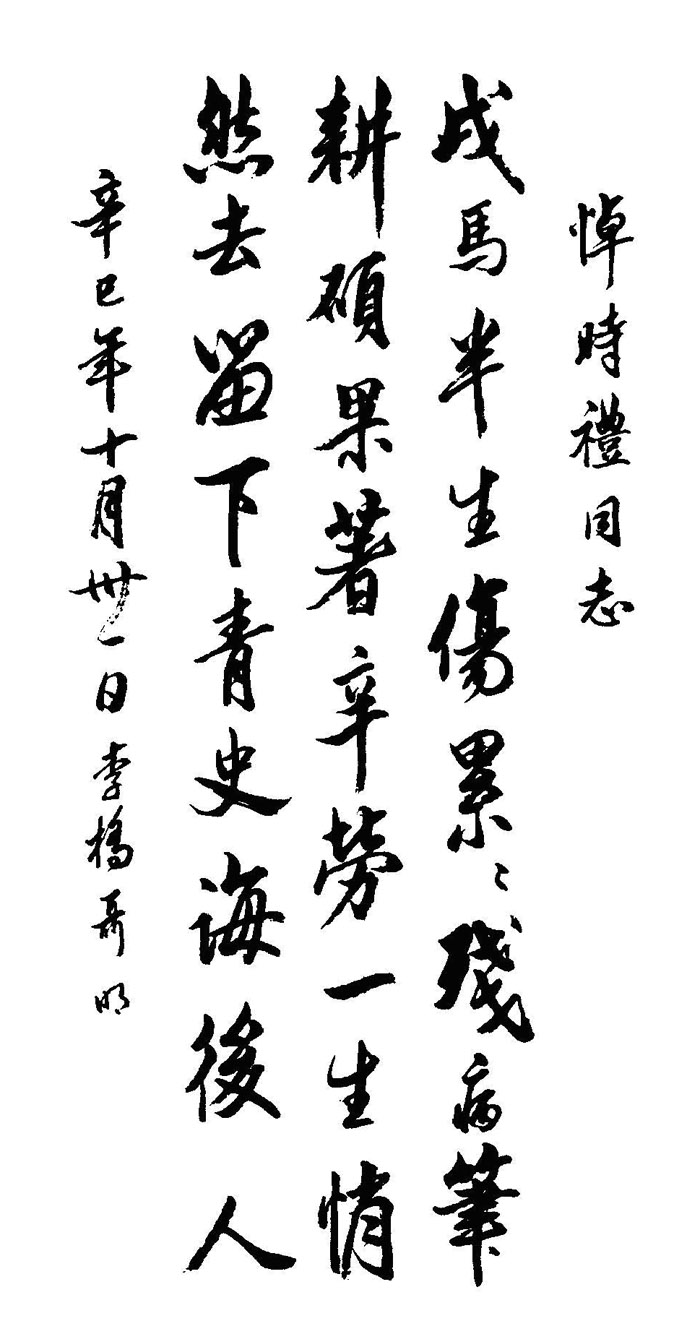 悼時禮同志
戎馬半生傷累〻殘病筆
耕碩果著辛勞一生悄
然去留下青史誨後人
辛巳年十月卅一日李橋明